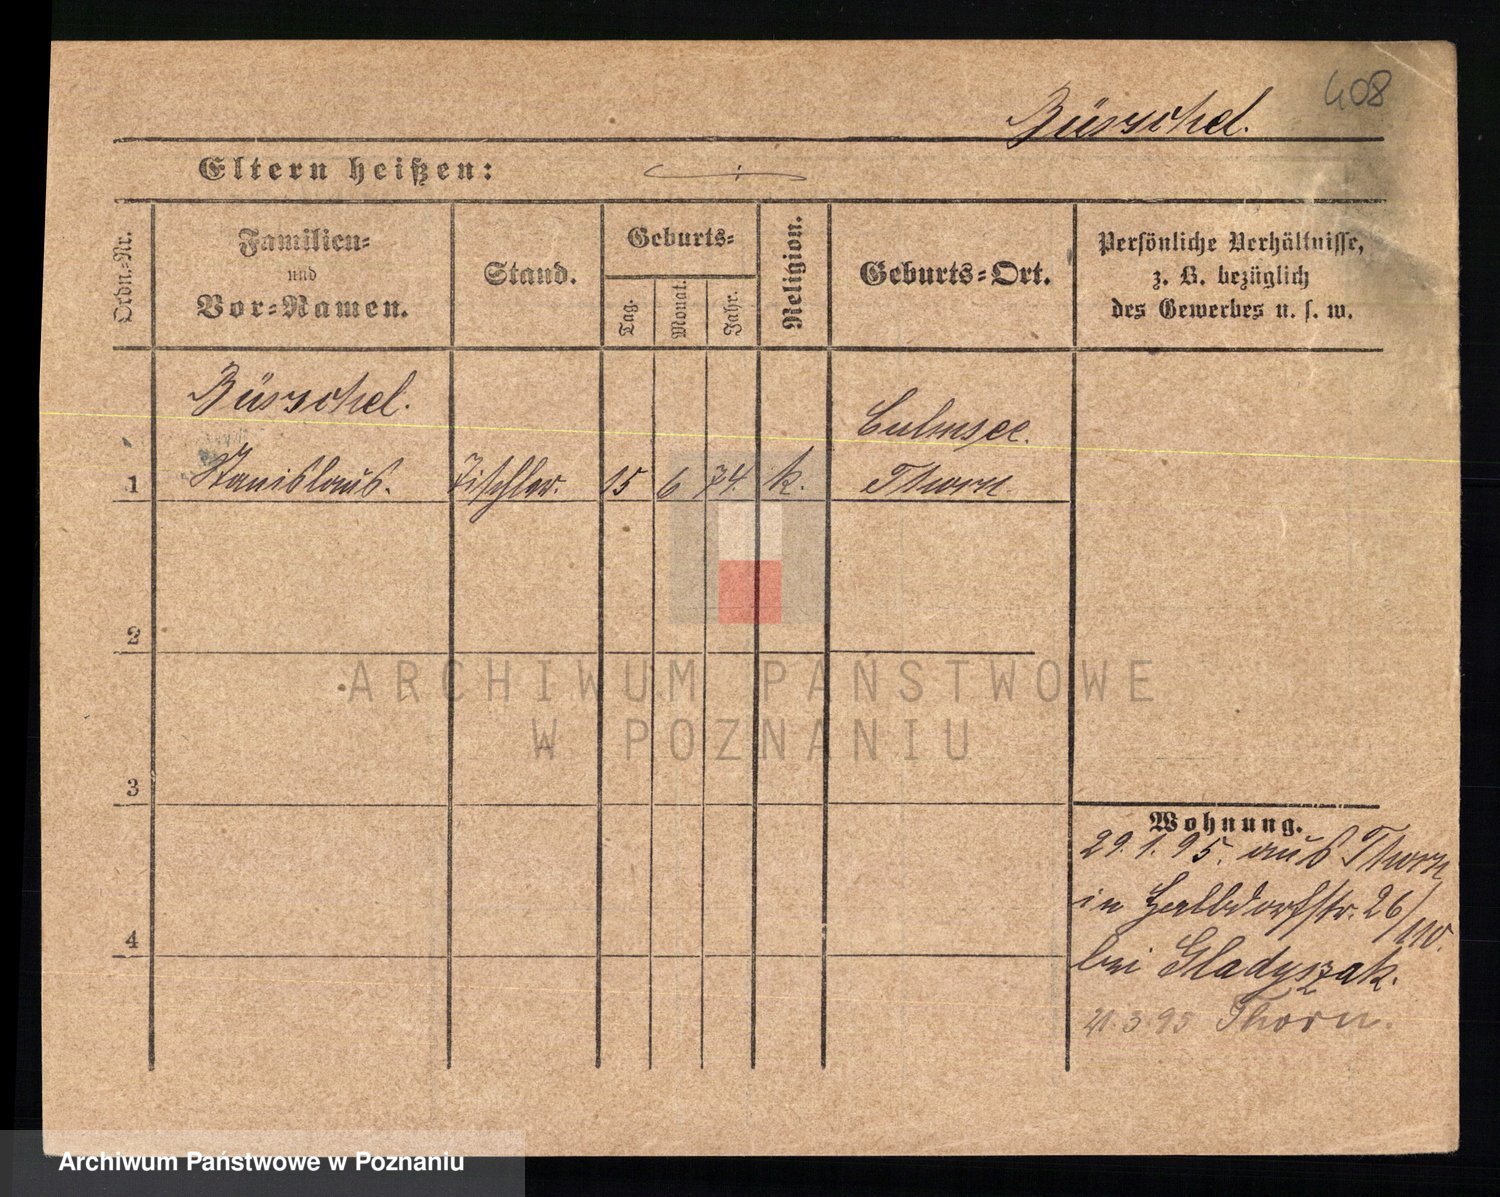 408
Bürschel.
Eltern heißen:
Ordn.-Nr.
Familien-
und
Vor-Namen.
Stand.
Geburts-
Tag.
Monat.
Jahr.
Religion.
Geburts-Ort.
Persönliche Verhältnisse,
z. B. bezüglich
des Gewerbes u. s. w.
Bürschel.
Culmsee.
1 Stanislaus. Tischler. 15 6 74. k. Thorn
2
3
4
Wohnung.
29.1.95. aus Thorn
in Halbdorfstr. 26/
bei Gladyszak.
21.3.95 Thorn.
ARCHIWUM PAŃSTWOWE
W POZNANIU
Archiwum Państwowe w Poznaniu